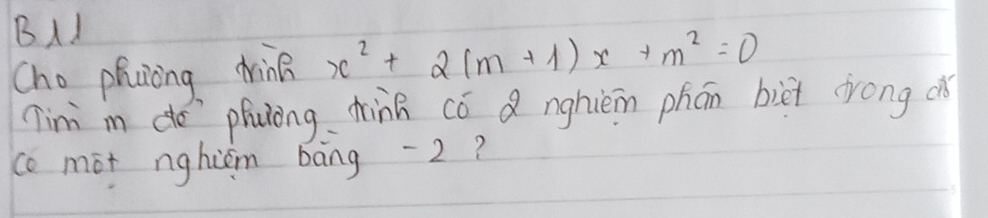 B11
Cho phương trình x² + 2(m + 1)x + m² = 0
Tìm m để phương trình có 2 nghiệm phân biệt trong đó
có một nghiệm bằng -2 ?